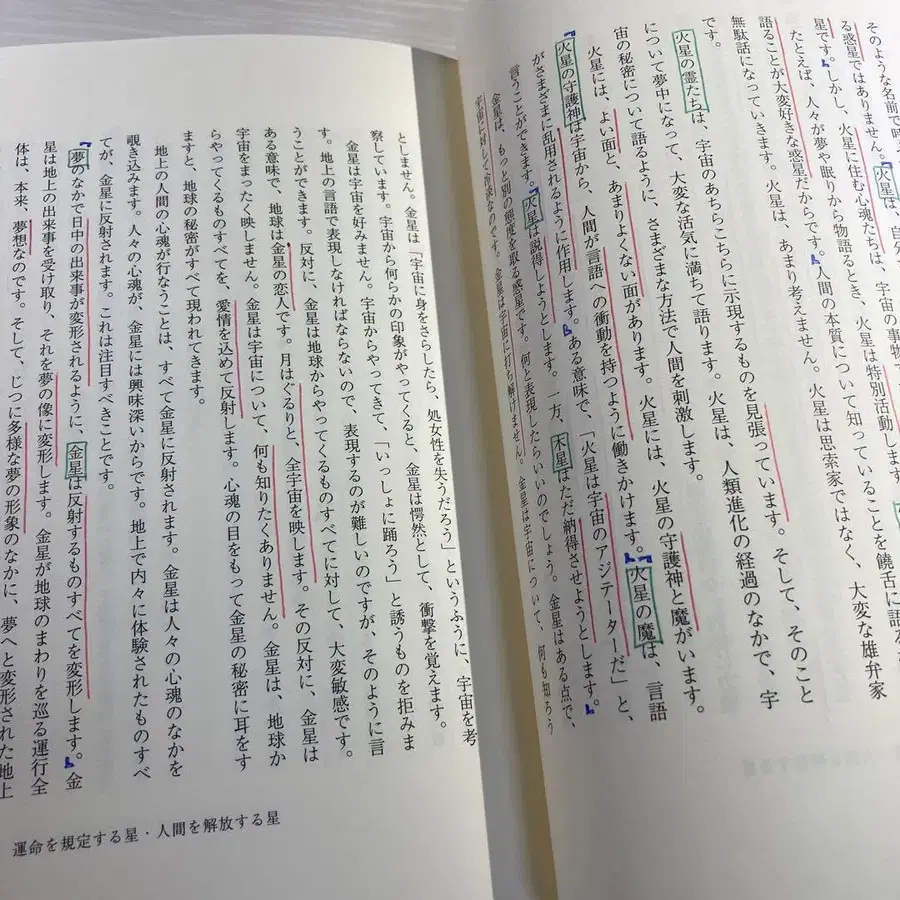 そのような名前で呼
る惑星ではありません。火星は、自分
星です。しかし、火星に住む心魂たちは、宇宙の事物
たとえば、人々が夢や眠りから物語るとき、火星は特別活動しま
語ることが大変好きな惑星だからです。人間の本質について知っていることを饒舌に語る
無駄話になっていきます。火星は、あまり考えません。火星は思索家ではなく、大変な雄弁家
です。
火星の霊たちは、宇宙のあちらこちらに示現するものを見張っています。そして、そのこと
について夢中になって、大変な活気に満ちて語ります。火星は、人類進化の経過のなかで、宇
宙の秘密について語るように、さまざまな方法で人間を刺激します。
火星には、よい面と、あまりよくない面があります。火星には、火星の守護神と魔がいます。
火星の守護神は宇宙から、人間が言語への衝動を持つように働きかけます。火星の魔は、言語
がさまざまに乱用されるように作用します。ある意味で、「火星は宇宙のアジテーターだ」と、
言うことができます。火星は説得しようとします。一方、木星はただ納得させようとします。
金星は、もっと別の態度を取る惑星です。何と表現したらいいのでしょう。金星はある点で、
宇宙に対して冷淡なのです。金星は宇宙に打ち解けません。金星は宇宙について、何も知ろう
としません。金星は「宇宙に身をさらしたら、処女性を失うだろう」というふうに、宇宙を考
察しています。宇宙から何らかの印象がやってくると、金星は愕然として、衝撃を覚えます。
金星は宇宙を好みません。宇宙からやってきて、「いっしょに踊ろう」と誘うものを拒みま
す。地上の言語で表現しなければならないので、表現するのが難しいのですが、そのように言
うことができます。反対に、金星は地球からやってくるものすべてに対して、大変敏感です。
ある意味で、地球は金星の恋人です。月はぐるりと、全宇宙を映します。その反対に、金星は
宇宙をまったく映しません。金星は宇宙について、何も知りたくありません。金星は、地球か
らやってくるものすべてを、愛情を込めて反射します。心魂の目をもって金星の秘密に耳をす
ますと、地球の秘密がすべて現われてきます。
地上の人間の心魂が行なうことは、すべて金星に反射されます。金星は人々の心魂のなかを
覗き込みます。人々の心魂が、金星には興味深いからです。地上で内々に体験されたものすべ
てが、金星に反射されます。これは注目すべきことです。
夢のなかで日中の出来事が変形されるように、金星は反射するものすべてを変形します。金
星は地上の出来事を受け取り、それを夢の像に変形します。金星が地球のまわりを巡る運行全
体は、本来、夢想なのです。そして、じつに多様な夢の形象のなかに、夢へと変形された地上
運命を規定する星・人間を解放する星